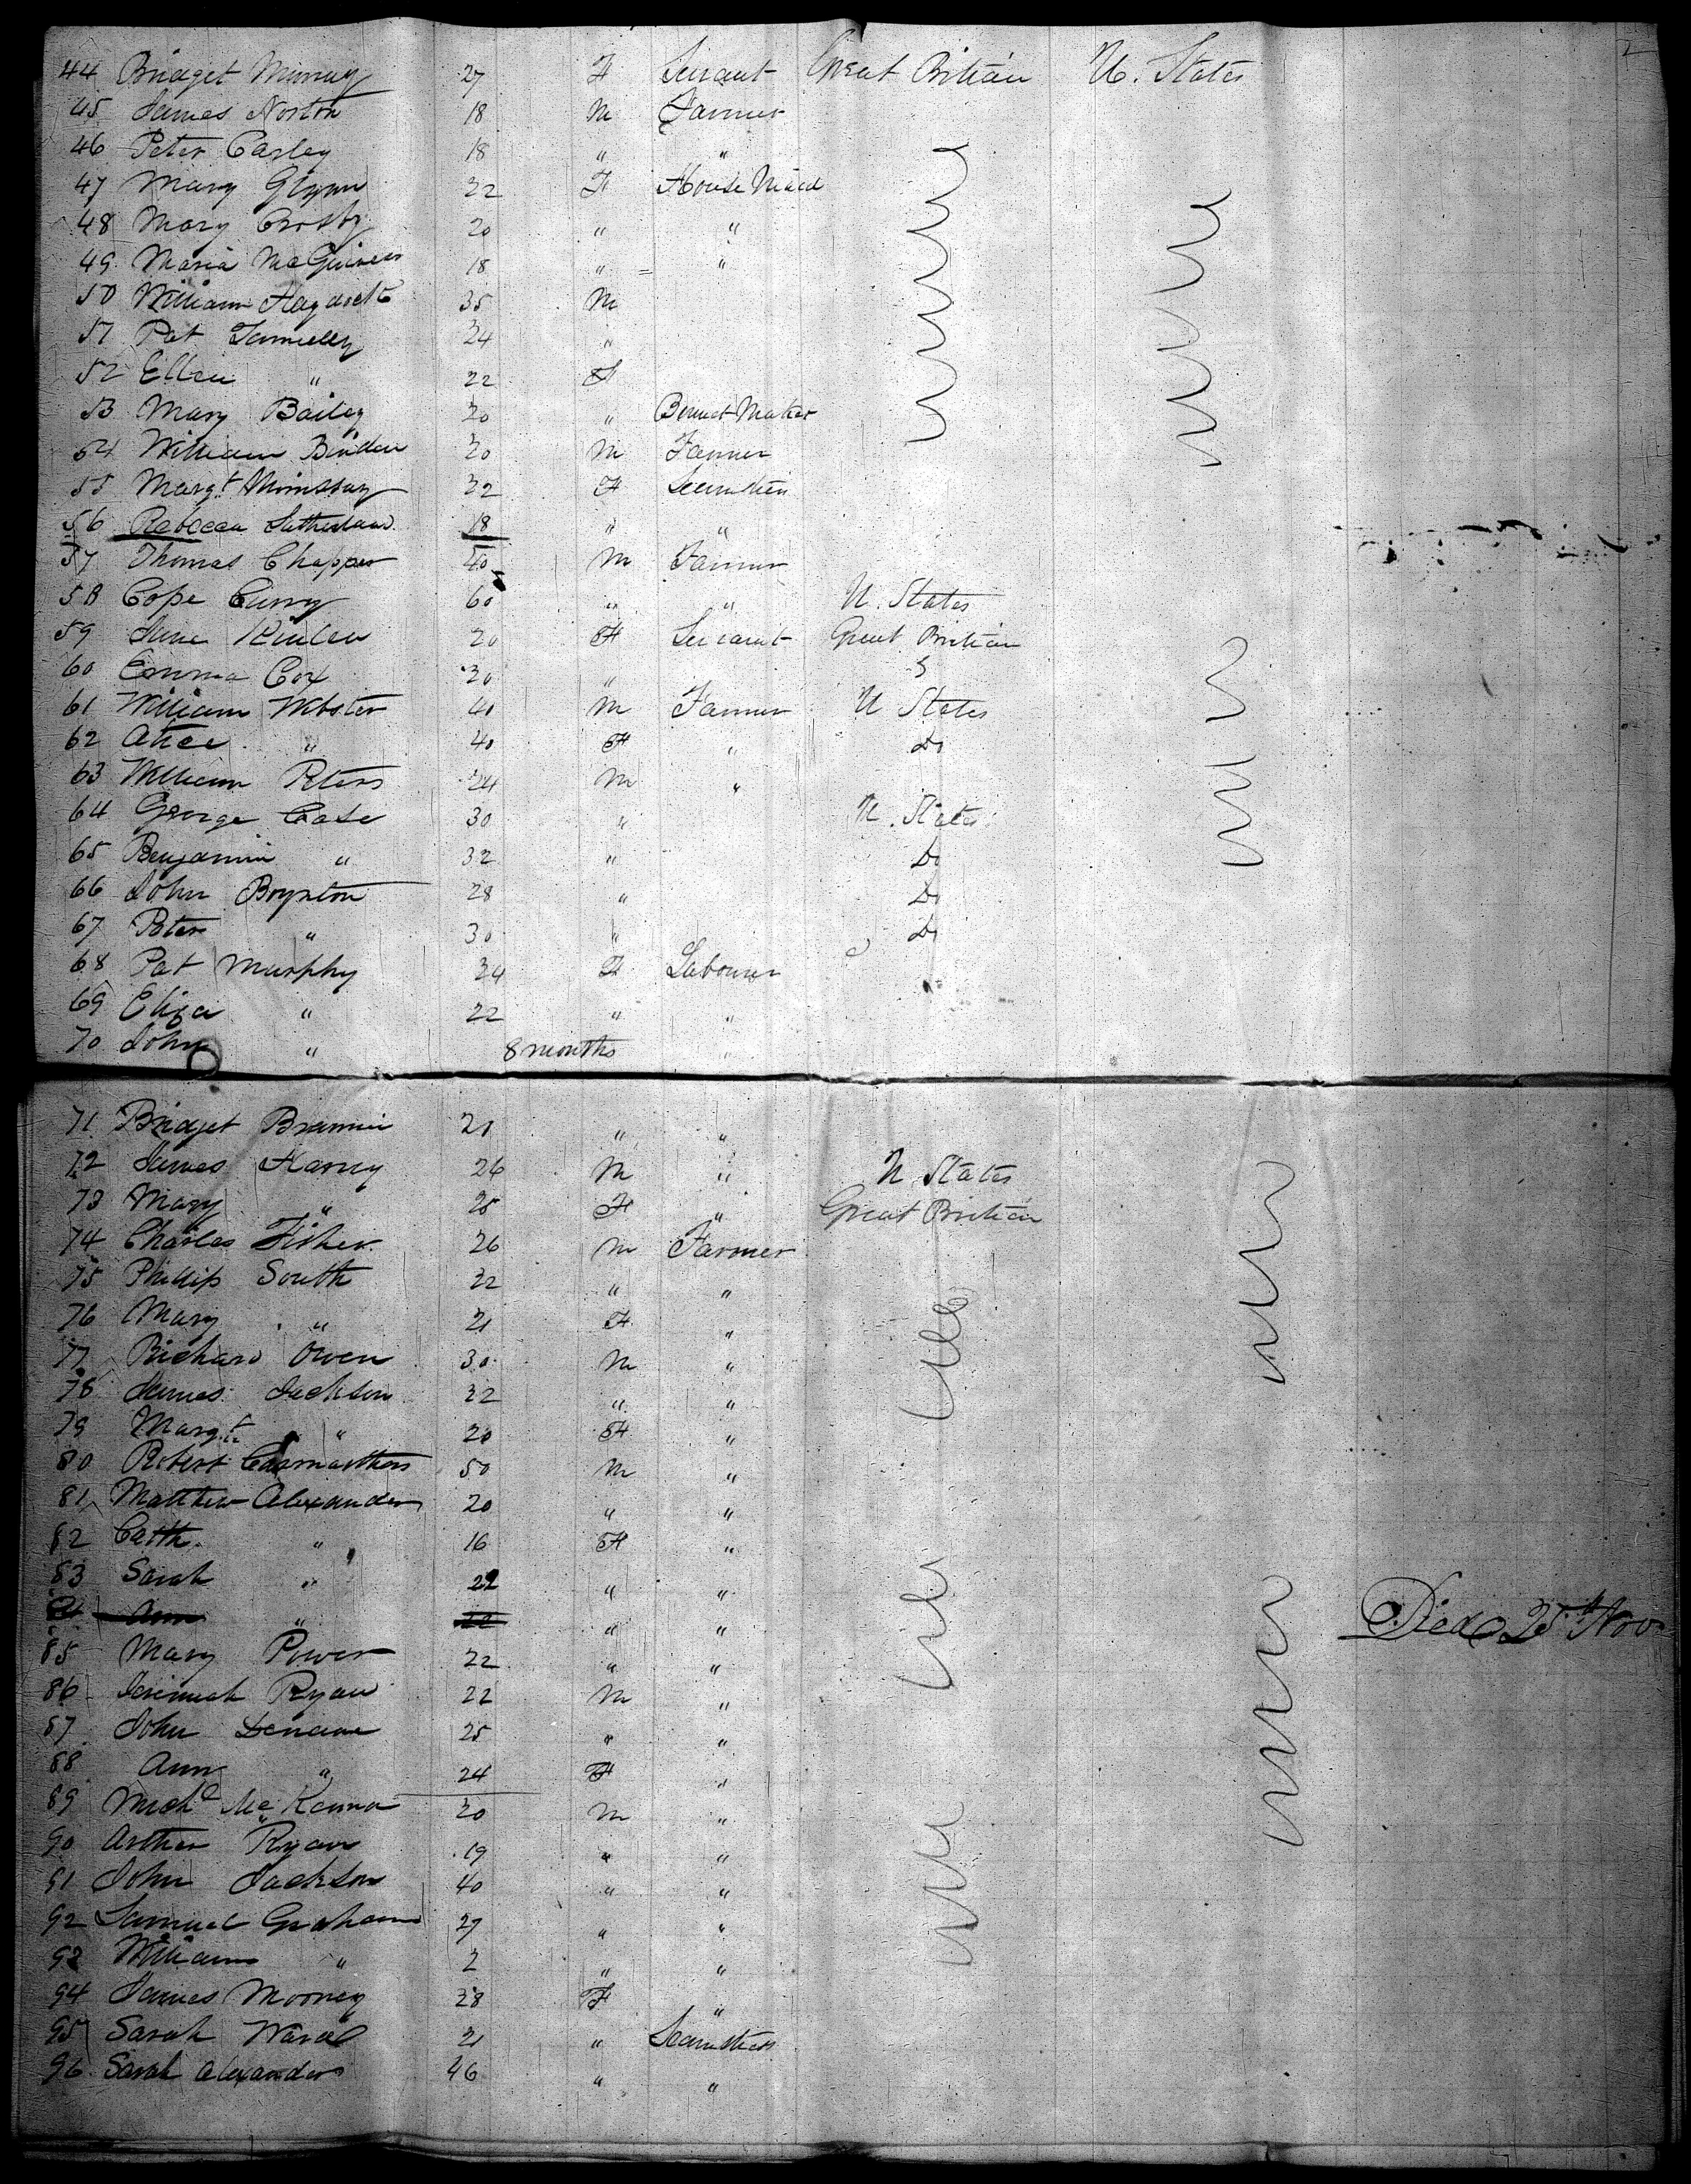 2
44 Bridget Murray 27 F Servant Great Britian U. States
45 James Norton 18 M Farmer
46 Peter Casley 18 " "
47 Mary Glynn 22 F House Maid
48 Mary Crosby 20 " "
49 Maria McGuiness 18 " "
50 William 35 M
51 Pat 24 "
52 Ellen " 22 F
53 Mary Bailey 20 " Bonnet Maker
54 William Binden 20 M Farmer
55 Margt 32 F
56 Rebecca Sutherland 18 " "
57 Thomas Chapper 40 M Farmer
58 Cope Curry 60 " " U. States
59 Jane 20 F Servant Great Britian
60 Emma Cox 20 "
61 William Webster 40 M Farmer U States
62 Alice " 40 F " Do
63 William Peters 24 M "
64 George Case 30 " U. States
65 Benjamin " 32 " Do
66 John Boynton 28 " Do
67 Peter " 30 " Do
68 Pat Murphy 24 F Labourer
69 Eliza " 22 " "
70 John " 8 months "
71 Bridget 21 " "
72 James Harney 26 M " U States
73 Mary " 25 F " Great Britian
74 Charles Fisher 26 M Farmer
75 Phillip South 22 " "
76 Mary " 21 F "
77 Richard Owen 30 M "
78 James Jackson 32 " "
79 Margt " 20 F "
80 Robert Carmarthers 50 M "
81 Matthew Alexander 20 " "
82 Cath " 16 F "
83 Sarah " 22 " "
84 Ann " 22 " " Died 25th Nov
85 Mary Power 22 " "
86 Jeremiah Ryan 22 M "
87 John 25 " "
88 Ann " 24 F "
89 Michl McKenna 20 M "
90 Arther Ryan 19 " "
91 John Jackson 40 " "
92 Samuel Graham 27 " "
93 William " 2 " "
94 James Mooney 28 F "
95 Sarah Ward 21 " Seamstress
96 Sarah Alexander 46 " "